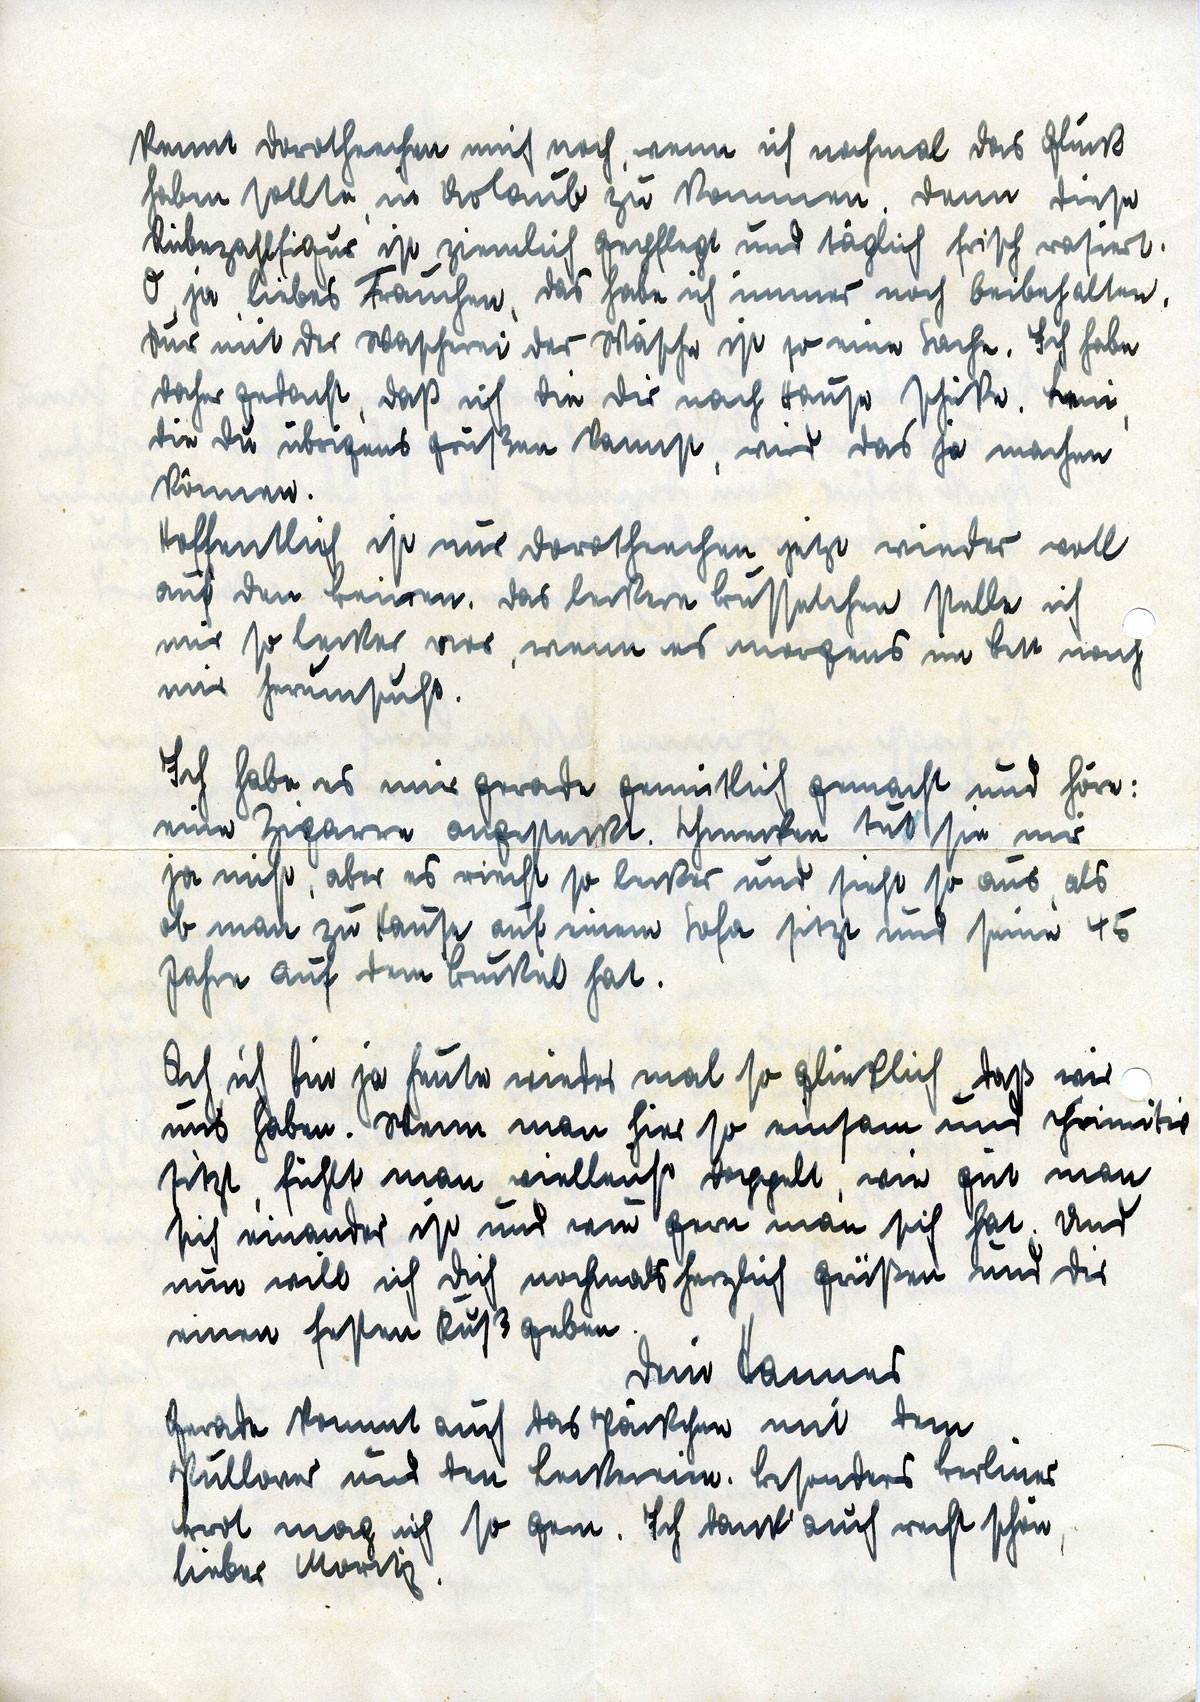 kennt Dorotheechen mich noch, wenn ich nochmal das Glück
haben sollte, in Urlaub zu kommen. Denn diese
Rübezahlfigur ist ziemlich gepflegt und täglich frisch rasiert.
O, ja, liebes Frauchen, das habe ich immer noch beibehalten.
Nur mit der Wascherei der Wäsche ist so eine Sache. Ich habe
daher gedacht, daß ich die Dir nach Hause schicke. Leni,
die Du übrigens grüßen kannst, wird das ja machen
können.
Hoffentlich ist nur Dorotheechen jetzt wieder voll
auf den Beinen. Das leckere Busselchen stelle ich
mir so lecker vor, wenn es morgens im Bett nach
mir herumsucht.
Ich habe es mir gerade gemütlich gemacht und höre:
eine Zigarre angesteckt. Schmecken tut sie mir
ja nicht, aber es riecht so lecker und sieht so aus, als
ob man zu Hause auf einem Sofa sitzt und seine 45
Jahre auf dem Buckel hat.
Ach ich bin ja heute wieder mal so glücklich, daß wir
uns haben. Wenn man hier so einsam und primitiv
sitzt, fühlt man vielleicht doppelt, wie gut man
sich einander ist und wie gern man sich hat. Und
nun will ich Dich nochmals herzlich grüßen und Dir
einen festen Kuß geben.
Dein Hannes
Gerade kommt auch das Päckchen mit dem
Pullover und den Leckereien. Besonders Berliner
Brot mag ich so gern. Ich dank' auch recht schön,
lieber Moritz.